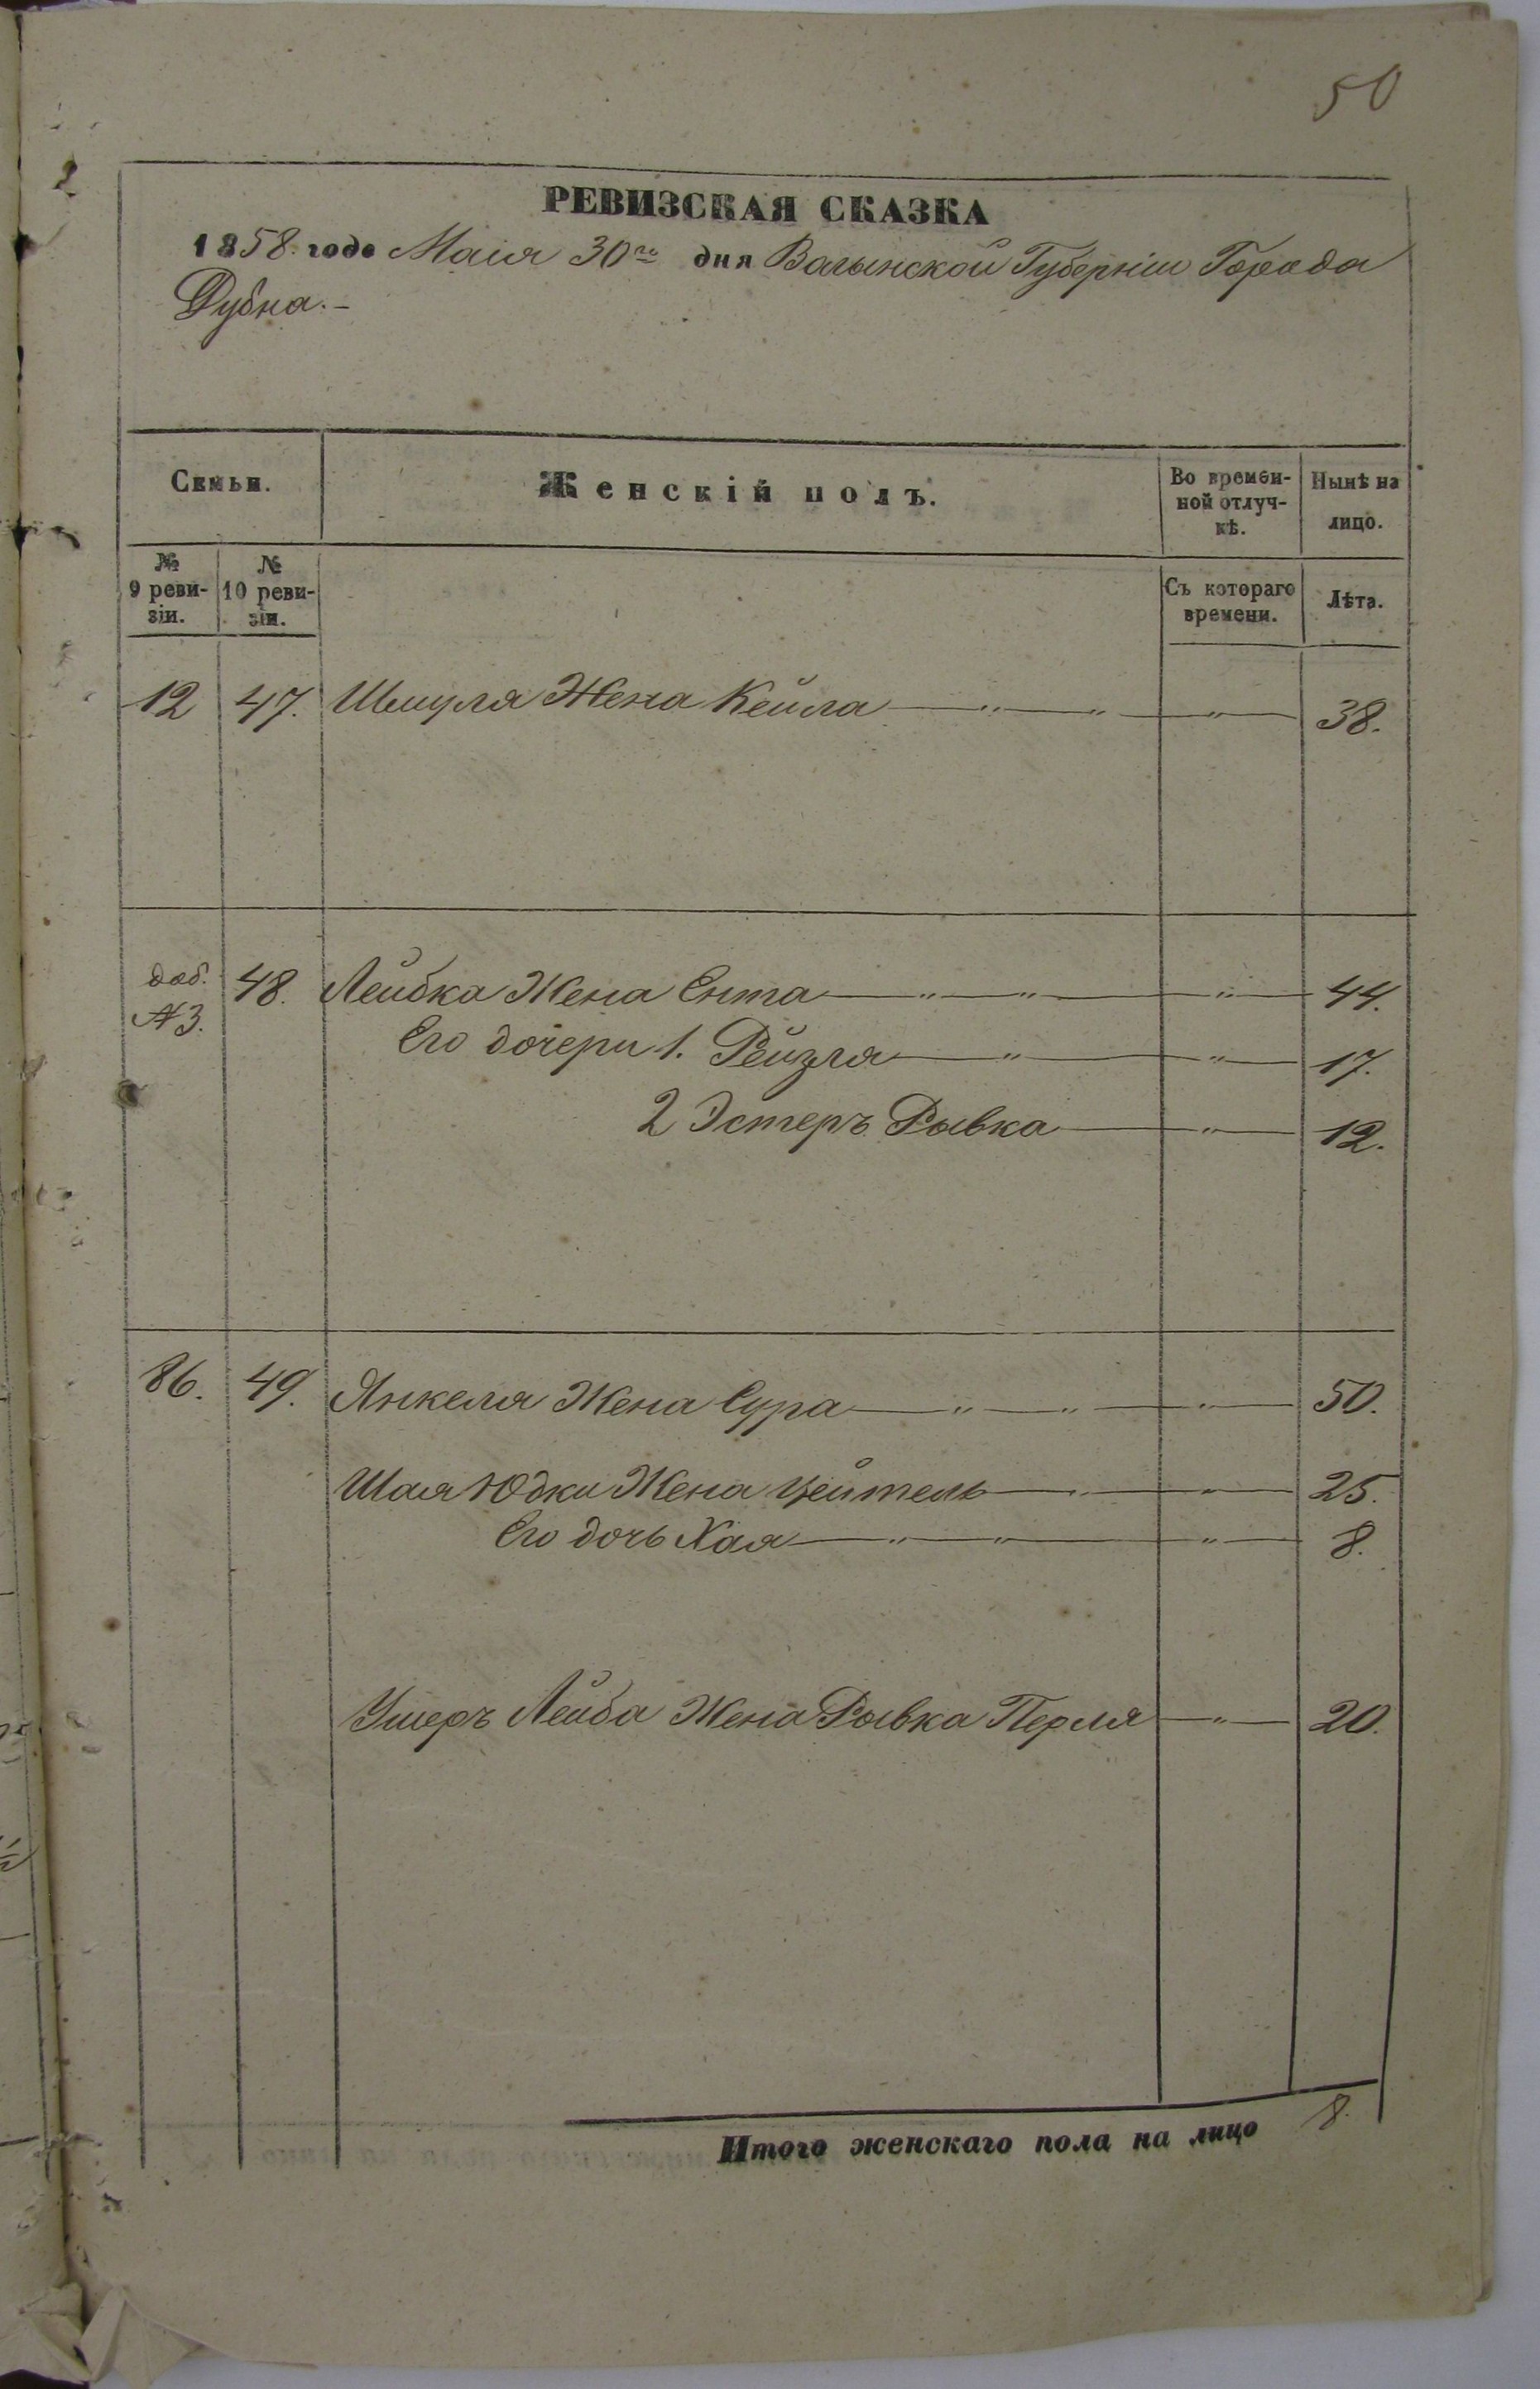 50
РЕВИЗСКАЯ СКАЗКА
1858. года Маія 30го дня Волынской Губерніи Города
Дубна.-
Семьи.
Женскій полъ.
Во времен-
ной отлуч-
кѣ.
Нынѣ на
лицо.
№
9 реви-
зіи.
№
10 реви-
зіи.
Съ котораго
времени.
Лѣта.
12 47. Шмуля Жена Кейла — " — " — " — 38.
доб.
№3. 48. Лейбка Жена Ента — " — " — " — 44.
Его дочери 1. Рейзля — " — " — 17.
2 Эстеръ Рывка — " — 12.
86. 49. Янкеля Жена Сура — " — " — " — 50.
Шая Юдки Жена Цейтель — " — " — 25.
Его дочь Хая — " — " — " — 8.
Ушеръ Лейба Жена Рывка Перля — " — 20.
Итого женскаго пола на лицо 8.